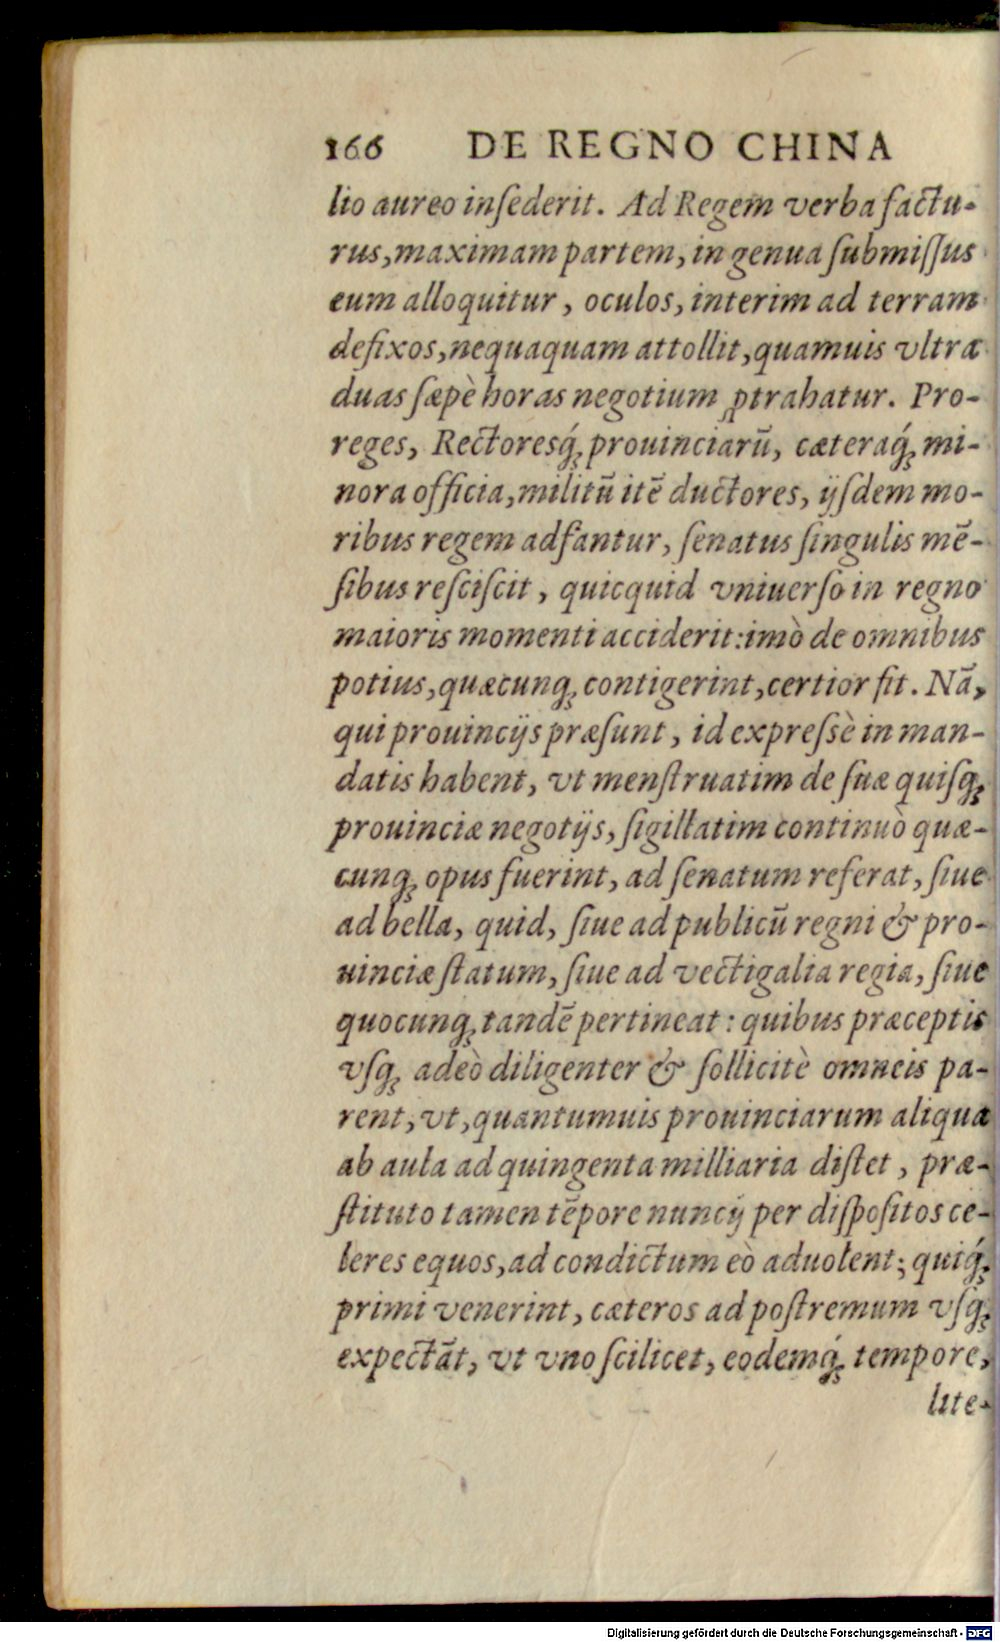 166 DE REGNO CHINA
lio aureo inſederit. Ad Regem verba factu-
rus, maximam partem, in genua ſubmiſſus
eum alloquitur, oculos, interim ad terram
defixos, nequaquam attollit, quamuis vltra
duas ſæpè horas negotium ꝓtrahatur. Pro-
reges, Rectoresq́; prouinciarū, cæteraq́; mi-
nora officia, militū itē ductores, ijſdem mo-
ribus regem adfantur, ſenatus ſingulis mē-
ſibus reſciſcit, quicquid vniuerſo in regno
maioris momenti acciderit: imò de omnibus
potius, quæcunq; contigerint, certior fit. Nā,
qui prouincijs præſunt, id expreſsè in man-
datis habent, vt menſtruatim de ſuæ quiſq;
prouinciæ negotijs, ſigillatim continuò quæ-
cunq; opus fuerint, ad ſenatum referat, ſiue
ad bella, quid, ſiue ad publicū regni & pro-
uinciæ ſtatum, ſiue ad vectigalia regia, ſiue
quocunq; tandē pertineat: quibus præceptis
vſq; adeò diligenter & ſollicitè omneis pa-
rent, vt, quantumuis prouinciarum aliqua
ab aula ad quingenta milliaria diſtet, præ-
ſtituto tamen tēpore nuncij per diſpoſitos ce-
leres equos, ad condictum eò aduolent; quiq́;
primi venerint, cæteros ad poſtremum vſq;
expectāt, vt vno ſcilicet, eodemq́; tempore,
lite-
Digitalisierung gefördert durch die Deutsche Forschungsgemeinschaft - DFG